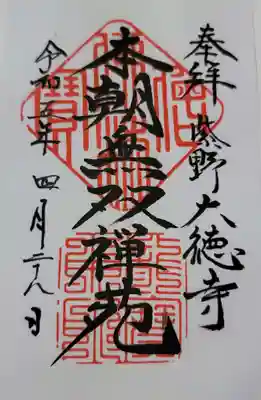 奉拜 紫野大徳寺
本朝無双禅苑
令和五年 四月二十八日